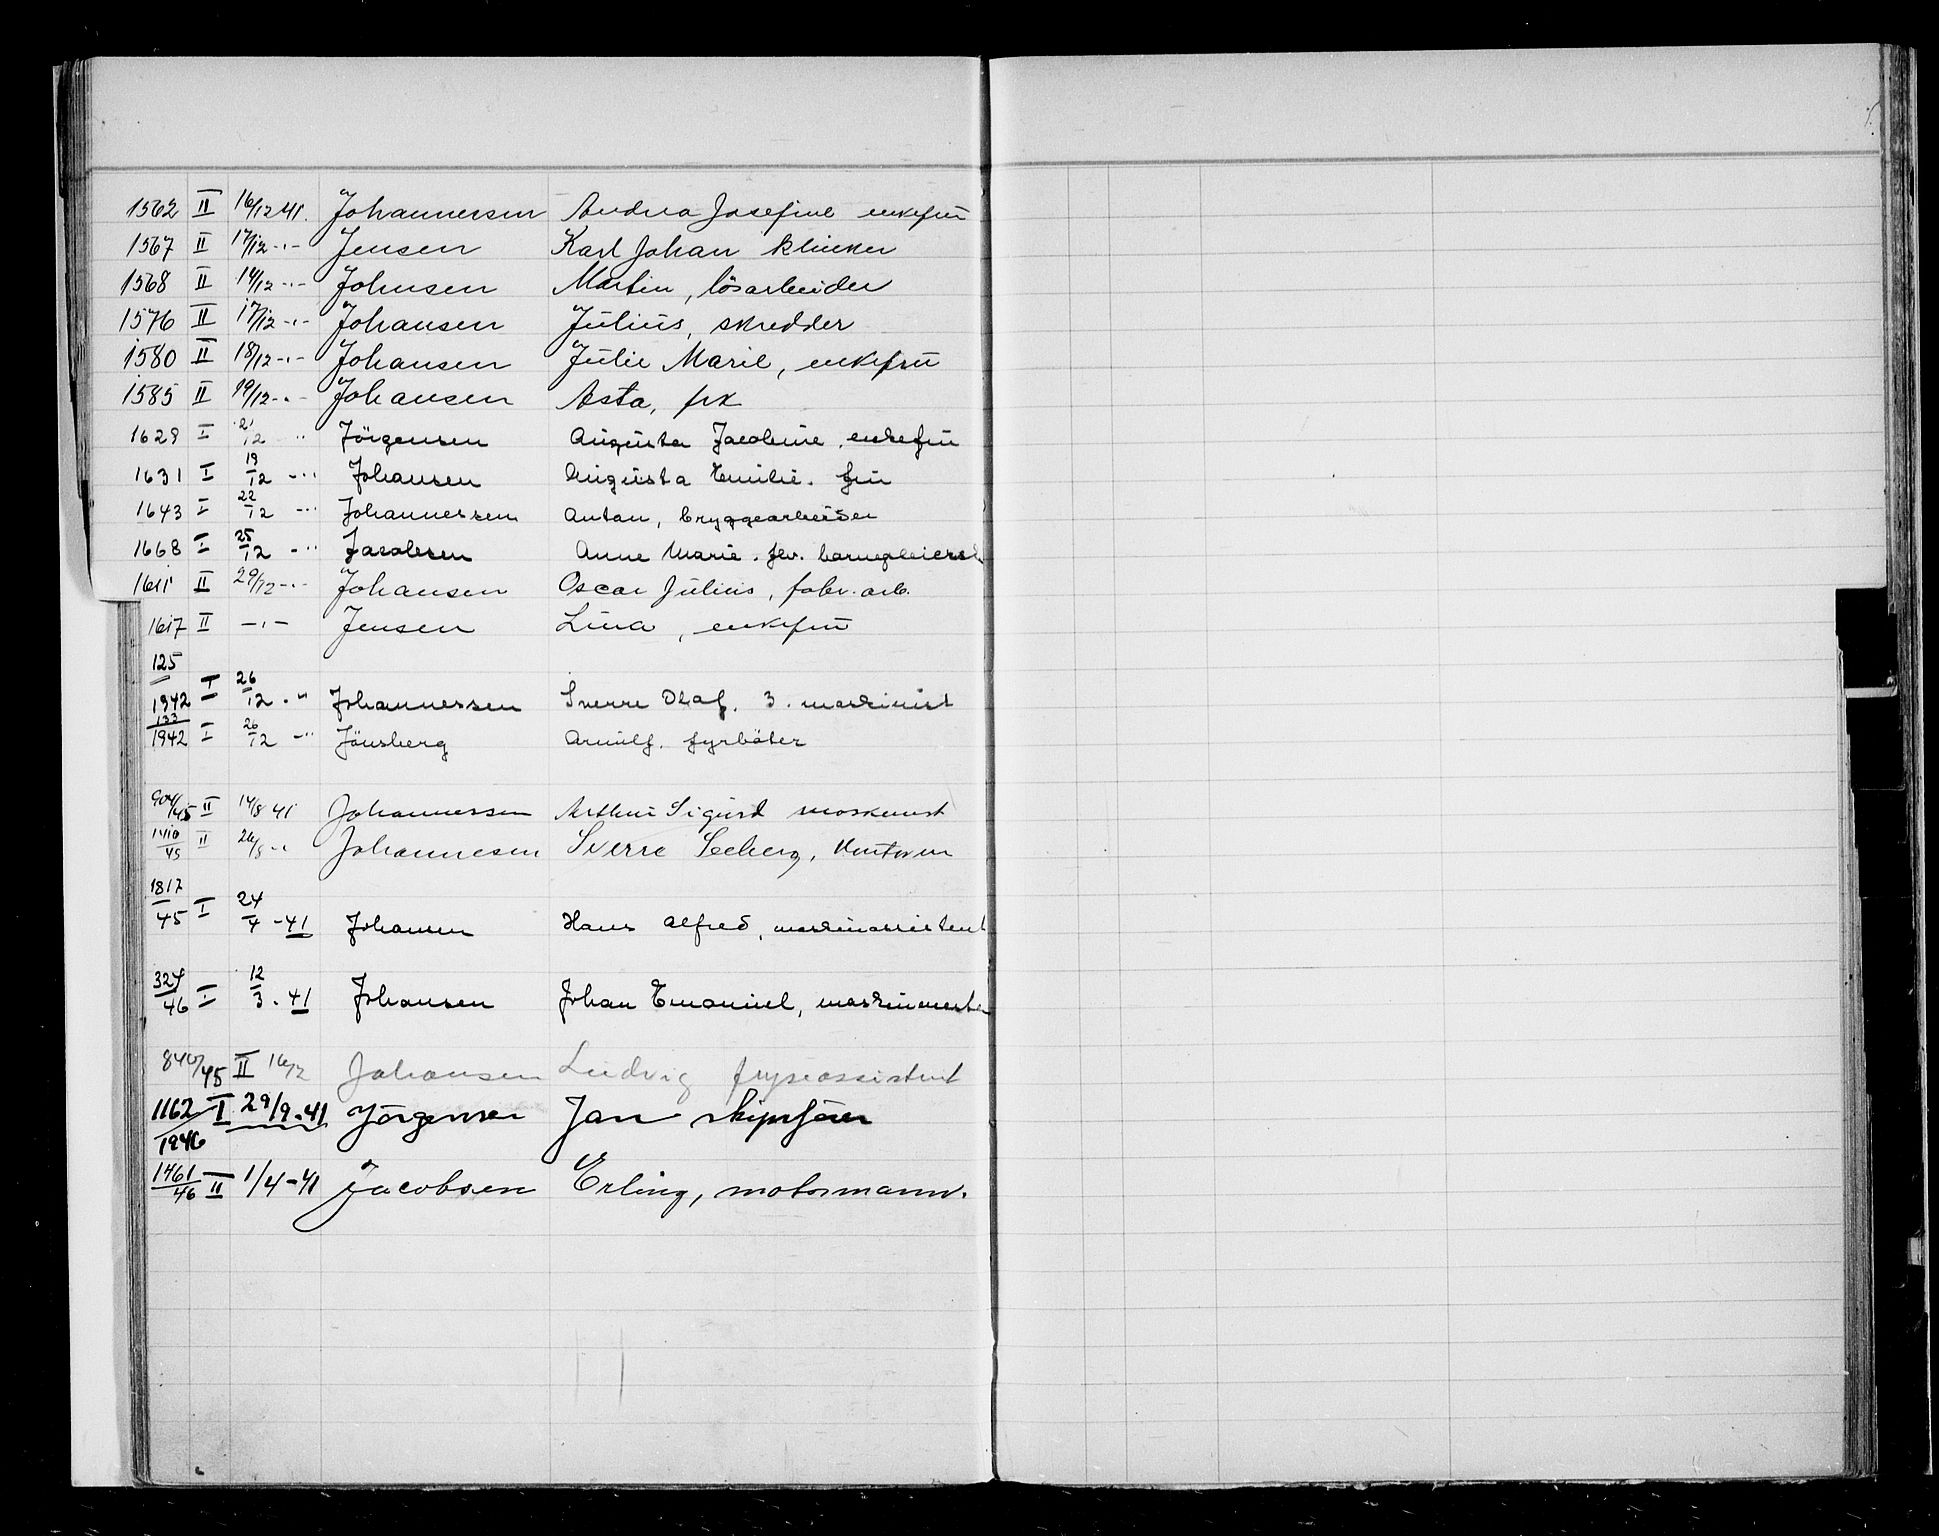 1562 II 16/12 41. Johannessen Andrea Josefine enkefru
1567 II 17/12 -"- Jensen Karl Johan klinker
1568 II 14/12 -"- Johnsen Martin, lösarbeider
1576 II 17/12 -"- Johansen Julius, skredder
1580 II 18/12 -"- Johansen Julie Marie, enkefru
1585 II 19/12 -"- Johansen Asta, frk
1629 I 21/12 " Jörgensen Augusta Jacobine, enkefru
1631 I 19/12 -" Johansen Augusta Emilie. fru
1643 I 22/12 -" Johannessen Anton, bryggearbeider
1668 I 25/12 -" Jacobsen Anne Marie. fhv.
1611 II 29/12 -"- Johansen Oscar Julius, fabr. arb.
1617 II -"- Jensen Lina, enkefru
125/1942 I 26/12 -" Johannessen Sverre Olaf. 3. maskinist
133/1942 I 26/12 -" Jönsberg Arnulf. fyrböter
904/45 II 14/8 41 Johannessen Arthur Sigurd maskinist
1410/45 II 26/8 -" Johannesen Sverre Seeberg,
1817/45 I 24/4 -41 Johansen Hans Alfred, maskinassistent
324/46 I 12/3 - 41 Johansen Johan Emanuel, maskinmester
840/45 II 16/2 Johansen Ludvig fryseassistent
1162/1946 I 29/9 -41 Jörgensen Jan skipsförer
1461/46 II 1/4 -41 Jacobsen Erling, motormann.